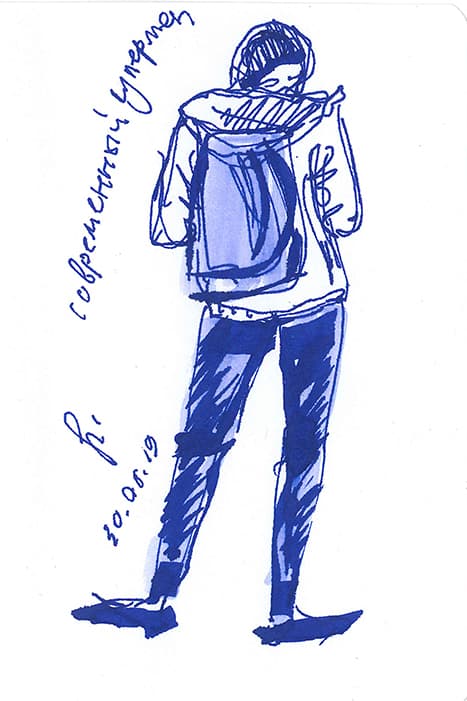 современный супермен
30.06.19